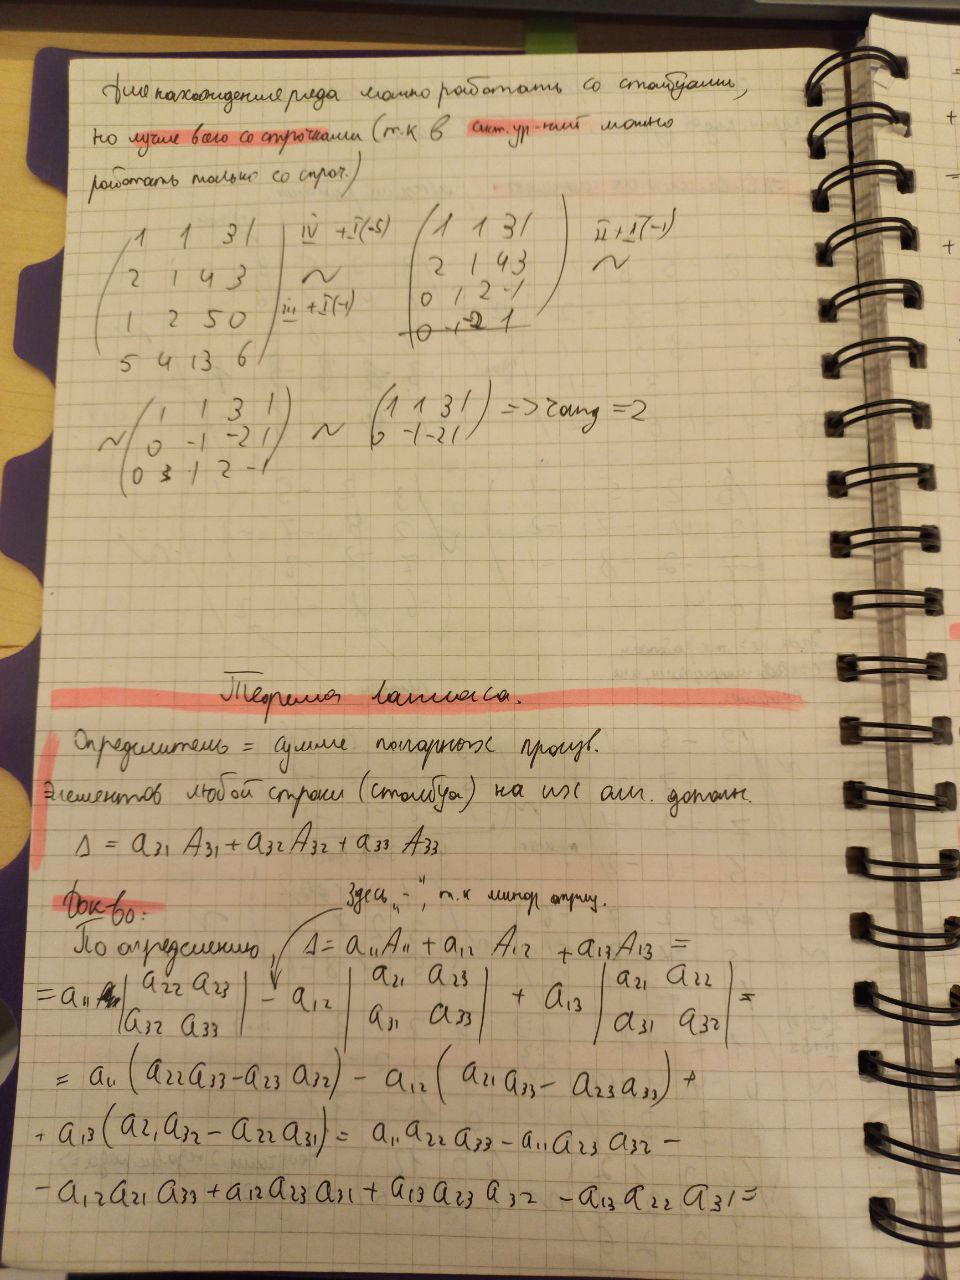 Для нахождения ранга можно работать со столбцами,
но лучше всего со строчками (т.к в сист. ур-ний можно
работать только со строч.)
1 1 3 1 IV + I(-5) 1 1 3 1 II + I(-1)
2 1 4 3 ~ 2 1 4 3 ~
1 2 5 0 III + I(-1) 0 1 2 -1
5 4 13 6 0 -1 -2 1
~ 1 1 3 1 ~ 1 1 3 1 => rang = 2
0 -1 -2 1 0 -1 -2 1
0 1 2 -1
Теорема Лапласа.
Определитель = сумме попарных произв.
Элементов любой строки (столбца) на их алг. дополн.
Δ = a31 A31 + a32 A32 + a33 A33
Док-во: Здесь „-", т.к минор
По определению, Δ = a11 A11 + a12 A12 + a13 A13 =
= a11 |a22 a23| - a12 |a21 a23| + a13 |a21 a22| =
|a32 a33| |a31 a33| |a31 a32|
= a11 (a22 a33 - a23 a32) - a12 (a21 a33 - a23 a33) +
+ a13 (a21 a32 - a22 a31) = a11 a22 a33 - a11 a23 a32 -
- a12 a21 a33 + a12 a23 a31 + a13 a23 a32 - a13 a22 a31 =